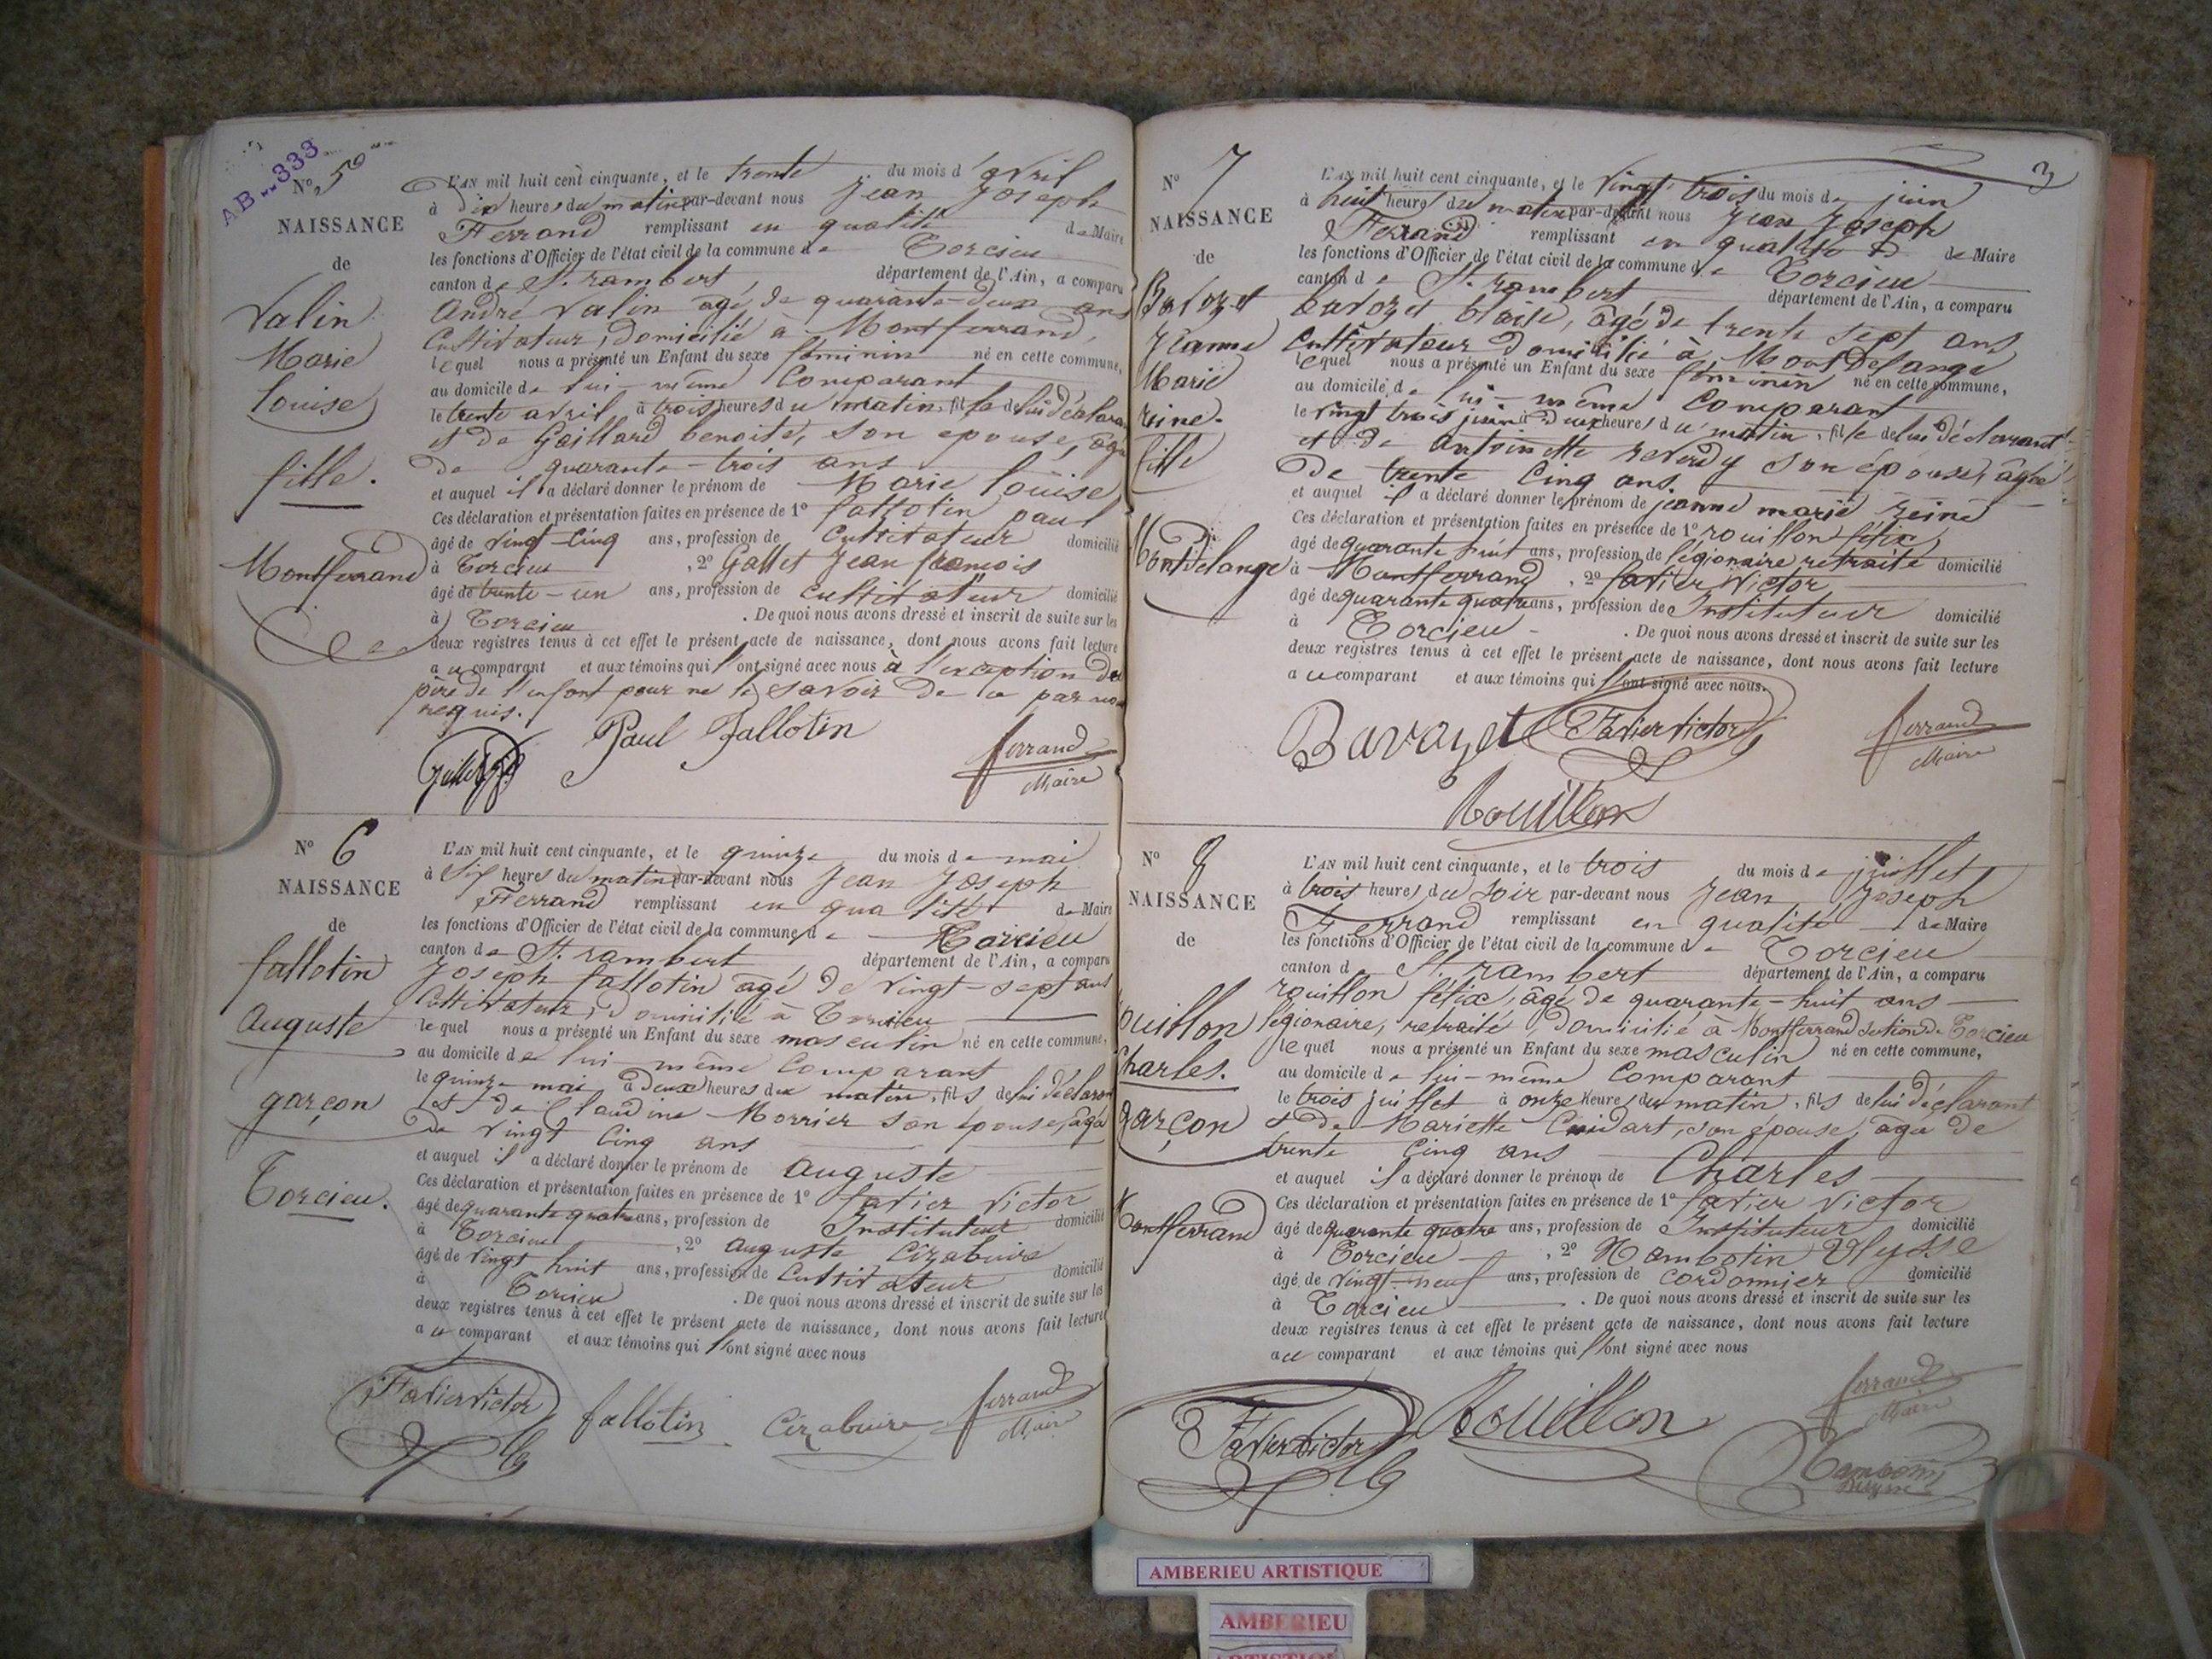 AB 333
N° 5
NAISSANCE
de
Valin
Marie
Louise
fille.
Montferrand
L'AN mil huit cent cinquante, et le trente du mois d'avril
à dix heures du matin par-devant nous Jean Joseph
Ferrand remplissant en qualité de Maire
les fonctions d'Officier de l'état civil de la commune de Torcieu
canton de St. rambert, département de l'Ain, a comparu
André Valin agé de quarante-deux ans
Cultivateur, domicilié à Montferrand,
lequel nous a présenté un Enfant du sexe féminin né en cette commune,
au domicile de lui-même Comparant
le trente avril, à trois heures du matin, fille de lui déclara
et de Gaillard benoite, son epouse, agé
de quarante-trois ans
et auquel il a déclaré donner le prénom de Marie Louise
Ces déclaration et présentation faites en présence de 1° fallotin paul
âgé de vingt-cinq ans, profession de cultivateur domicilié
à Torcieu, 2° Gallet Jean françois
âgé de trente-un ans, profession de cultivateur domicilié
à Torcieu. De quoi nous avons dressé et inscrit de suite sur les
deux registres tenus à cet effet le présent acte de naissance, dont nous avons fait lecture
au comparant et aux témoins qui l'ont signé avec nous à l'exception du
père de l'enfant pour ne le savoir de ce par nous
requis.
Paul Fallotin
ferrand
Maire
N° 6
NAISSANCE
de
fallotin
Auguste
garçon
Torcieu.
L'AN mil huit cent cinquante, et le quinze du mois de mai
à six heures du matin par-devant nous Jean Joseph
Ferrand remplissant en qualité de Maire
les fonctions d'Officier de l'état civil de la commune de Torcieu
canton de St. rambert, département de l'Ain, a comparu
Joseph fallotin âgé de vingt-sept ans
Cultivateur, domicilié à Torcieu
lequel nous a présenté un Enfant du sexe masculin né en cette commune,
au domicile de lui-même Comparant
le quinze mai, à deux heures du matin, fils de lui déclaran
et de Claudine Morrier son épouse, âgée
de vingt cinq ans
et auquel il a déclaré donner le prénom de Auguste
Ces déclaration et présentation faites en présence de 1° favier Victor
âgé de quarante quatre ans, profession de Instituteur domicilié
à Torcieu, 2° Auguste Cizabuire
âgé de vingt huit ans, profession de Cultivateur domicilié
à Torcieu. De quoi nous avons dressé et inscrit de suite sur les
deux registres tenus à cet effet le présent acte de naissance, dont nous avons fait lecture
au comparant et aux témoins qui l'ont signé avec nous
Favier Victor fallotin Cizabuire ferrand
Maire
3
N° 7
NAISSANCE
de
Bavozet
Jeanne
Marie
reine.
fille
Montdelange
L'AN mil huit cent cinquante, et le vingt trois du mois de juin
à huit heures du matin par-devant nous Jean Joseph
Ferrand remplissant en qualité de Maire
les fonctions d'Officier de l'état civil de la commune de Torcieu
canton de St. rambert département de l'Ain, a comparu
bavozet blaise, âgé de trente sept ans
Cultivateur domicilié à Montdelange
lequel nous a présenté un Enfant du sexe féminin né en cette commune,
au domicile de lui-même Comparant
le vingt trois juin à deux heures du matin, fille de lui déclarant
et de Antoinette reverdy son épouse, âgée
de trente cinq ans
et auquel il a déclaré donner le prénom de jeanne marie reine
Ces déclaration et présentation faites en présence de 1° rouillon félix,
âgé de quarante huit ans, profession de légionaire retraité domicilié
à Montferrand, 2° favier Victor
âgé de quarante quatre ans, profession de Instituteur domicilié
à Torcieu. De quoi nous avons dressé et inscrit de suite sur les
deux registres tenus à cet effet le présent acte de naissance, dont nous avons fait lecture
au comparant et aux témoins qui l'ont signé avec nous.
Bavozet Favier Victor ferrand
Maire
Rouillon
N° 8
NAISSANCE
de
rouillon
Charles.
garçon
Montferrand
L'AN mil huit cent cinquante, et le trois du mois de juillet
à trois heures du soir par-devant nous Jean Joseph
Ferrand remplissant en qualité de Maire
les fonctions d'Officier de l'état civil de la commune de Torcieu
canton de St. rambert département de l'Ain, a comparu
rouillon félix, âgé de quarante-huit ans
légionaire, retraité, domicilié à Montferrand section de Torcieu
lequel nous a présenté un Enfant du sexe masculin né en cette commune,
au domicile de lui-même Comparant
le trois juillet à onze heures du matin, fils de lui déclarant
et de Mariette Cuidart, son epouse, agée de
trente cinq ans
et auquel il a déclaré donner le prénom de Charles
Ces déclaration et présentation faites en présence de 1° favier Victor
âgé de quarante quatre ans, profession de Instituteur domicilié
à Torcieu, 2° Hambotin Ulysse
âgé de vingt-neuf ans, profession de cordonnier domicilié
à Torcieu. De quoi nous avons dressé et inscrit de suite sur les
deux registres tenus à cet effet le présent acte de naissance, dont nous avons fait lecture
au comparant et aux témoins qui l'ont signé avec nous
Favier Victor Rouillon ferrand
Maire
AMBERIEU ARTISTIQUE
AMBERIEU
ARTISTIQUE